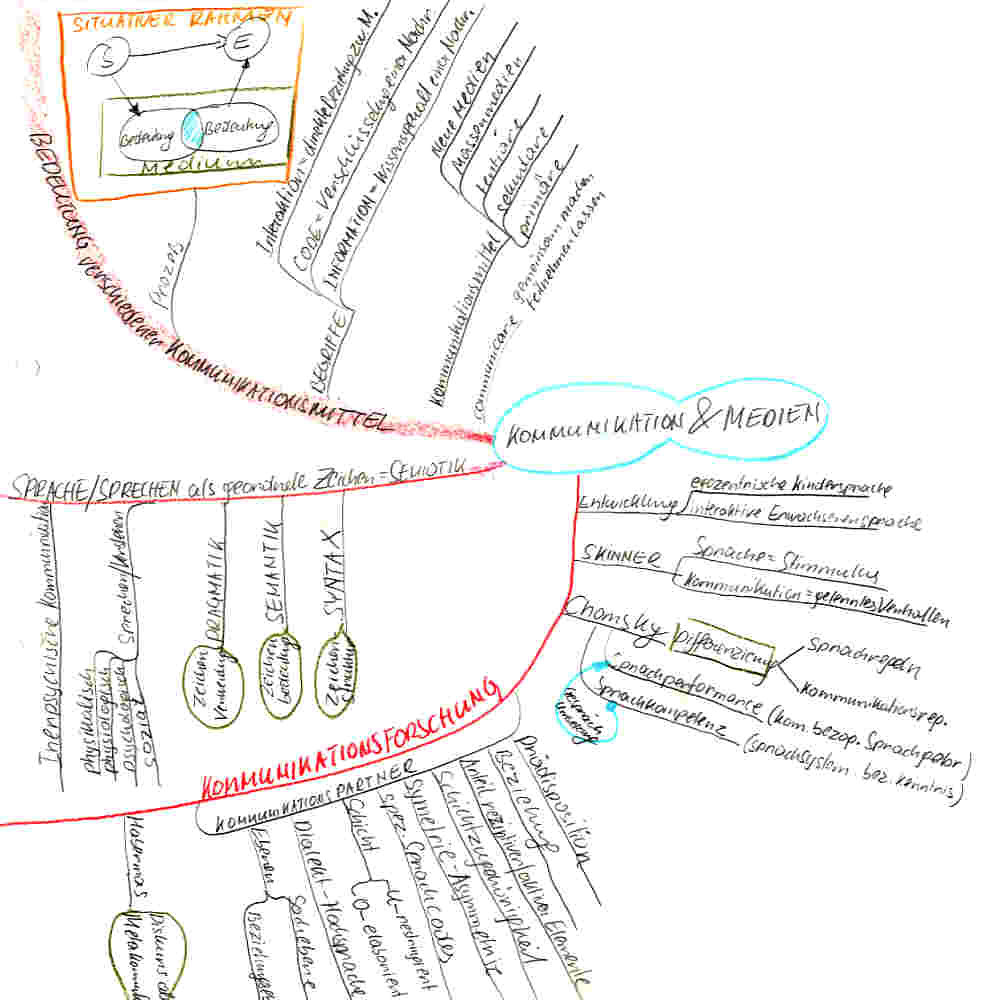 SITUATIVER RAHMEN
S
E
Bedeutung
Bedeutung
Medium
BEDEUTUNG verschiedener KOMMUNIKATIONSMITTEL
Prozeß
BEGRIFFE
Interaktion = direkte Beziehung zw. M.
CODE = Verschlüsselung einer Nachr.
INFORMATION = Wissensgehalt einer Nachr.
Kommunikationsmittel
Neue Medien
Massenmedien
tertiäre
sekundäre
primäre
communicare
gemeinsam machen
teilnehmen lassen
KOMMUNIKATION & MEDIEN
SPRACHE/SPRECHEN als geordnete Zeichen = SEMIOTIK
Sprechen/Verstehen
Physikalisch
physiologisch
psychologisch
Sozial
PRAGMATIK
Zeichen
Verwendung
SEMANTIK
Zeichen
bedeutung
SYNTAX
Zeichen
struktur
Entwicklung
egozentrische Kindersprache
interaktive Erwachsenensprache
SKINNER
Sprache = Stimmulus
Kommunikation = gelerntes Verhalten
Chomsky
Differenzierung
Sprachregeln
Kommunikationsreg.
Sprachperformance (kom. bezog. Sprachgebr)
Sprachkompetenz (sprachsystem. bez. Kenntnis)
KOMMUNIKATIONSFORSCHUNG
KOMMUNIKATIONSPARTNER
Prädisposition
Beziehung
Anteil rezeptiver/aktiver Elemente
Schichtzugehörigkeit
Symetrie-Asymmetrie
spez. Sprachcodes
Schicht
U-restringiert
O-elaboriert
Dialekt-Hochsprache
Ebenen
Sachebene
Habermas